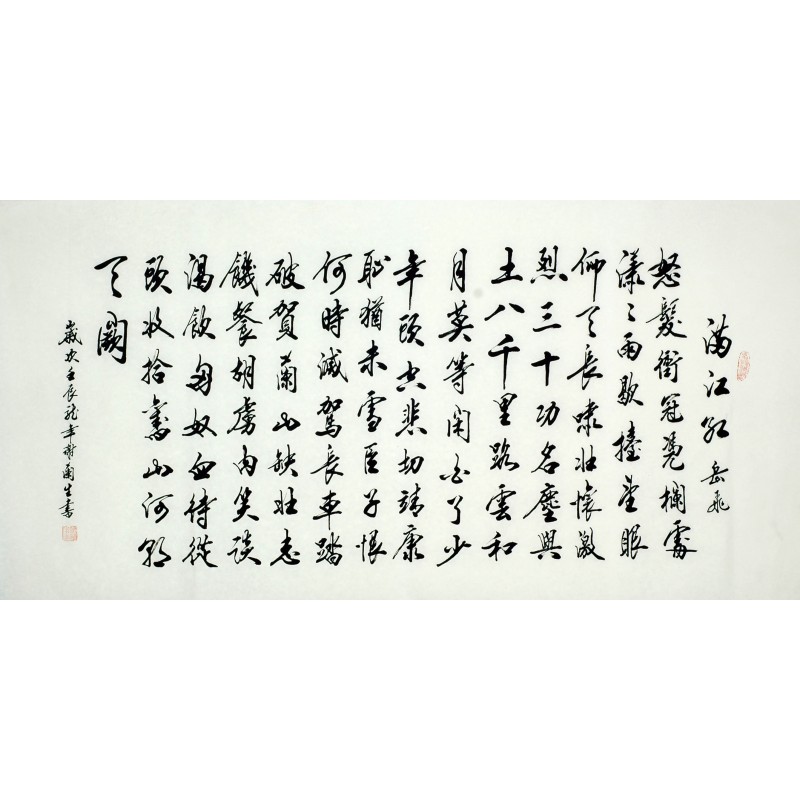 滿江紅 岳飛
怒髮衝冠憑欄處
瀟〻雨歇擡望眼
仰天長嘯壯懷激
烈三十功名塵與
土八千里路雲和
月莫等閑白了少
年頭空悲切靖康
耻猶未雪臣子恨
何時滅駕長車踏
破賀蘭山缺壯志
饑餐胡虜肉笑談
渴飲匈奴血待從
頭收拾舊山河朝
天闕
歲次壬辰龍年謝蘭生書